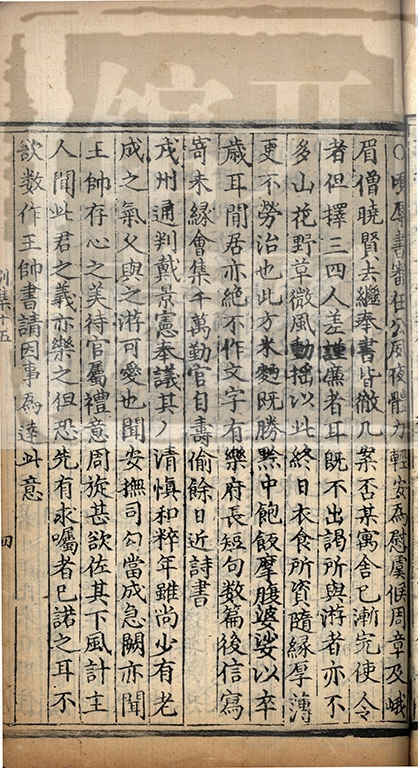 ○頃辱書審在公夙夜體力輕安為慰虞候周章及峨
眉僧曉賢去繼奉書皆徹几案否某寓舍已漸完使令
者但擇三四人差謹廉者耳既不出謁所與游者亦不
多山花野草微風動搖以此終日衣食所資隨緣厚薄
更不勞治也此方米麵既勝黔中飽飯摩腹婆娑以卒
歲耳閒居亦絶不作文字有樂府長短句數篇後信寫
寄未緣會集千萬勤官自壽偷餘日近詩書
茂州通判戴景憲奉議其人清慎和粹年雖尚少有老
成之氣久與之游可愛也聞安撫司勾當成急闕亦聞
王帥存心之美待官屬禮意周旋甚欲佐其下風計主
人聞此君之義亦樂之但恐先有求囑者已諾之耳不
欲數作王帥書請因事為達此意
別集十五
四